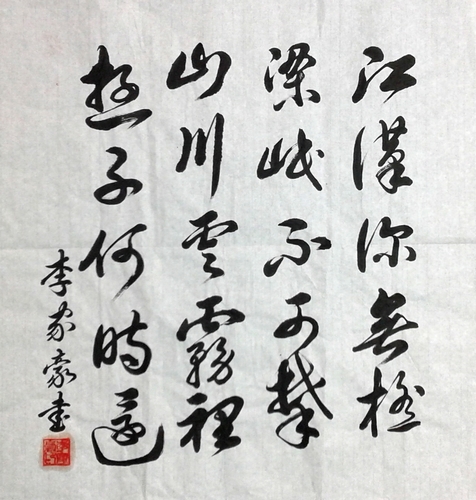 江漢深無極
梁岷不可攀
山川雲霧裡
遊子何時還
李家豪書